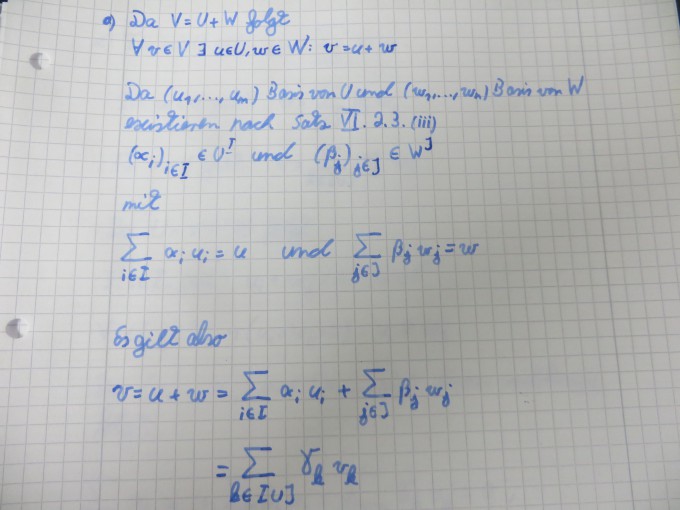 a) Da V = U + W folgt
∀ v ∈ V ∃ u ∈ U, w ∈ W: v = u + w
Da (u₁, ..., uₘ) Basis von U und (w₁, ..., wₙ) Basis von W
existieren nach Satz VI. 2.3. (iii)
(αᵢ)_{i∈I} ∈ U^I und (βⱼ)_{j∈J} ∈ W^J
mit
∑_{i∈I} αᵢ uᵢ = u und ∑_{j∈J} βⱼ wⱼ = w
Es gilt also
v = u + w = ∑_{i∈I} αᵢ uᵢ + ∑_{j∈J} βⱼ wⱼ
= ∑_{k∈I∪J} γₖ vₖ